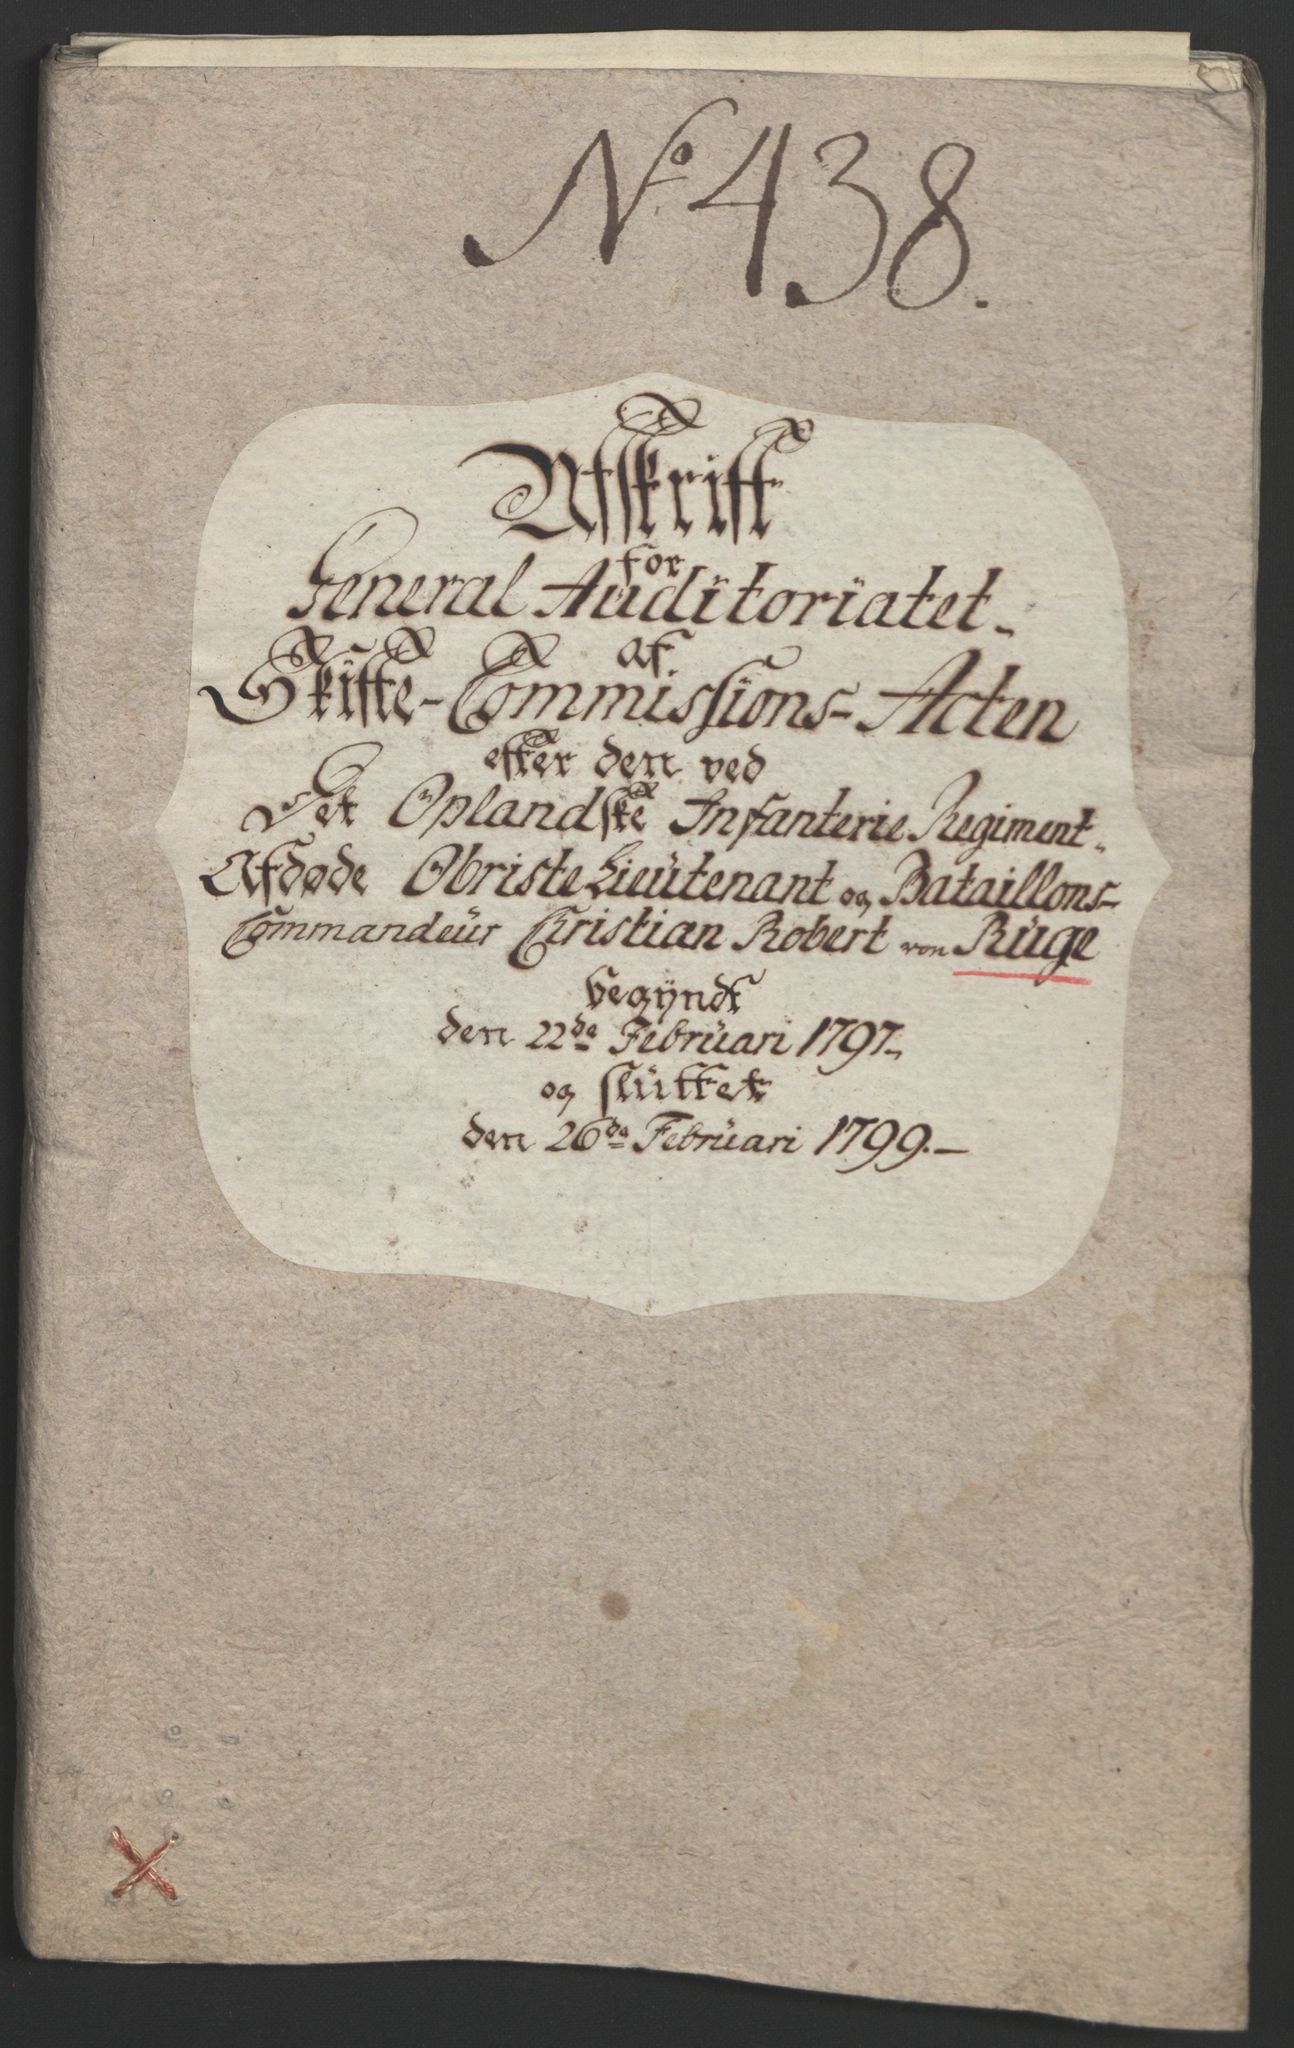 No 438.
Afskrift
for
General Auditoriatet.
af
Skifte-Commissions-Acten
efter den ved
Det Oplandske Infanterie Regiment.
Afdøde Obriste Lieutenant og Bataillons-
Commandeur Christian Robert von Rüge
begyndt
den 22de Februari 1797.
og sluttet
den 26de Februari 1799.-